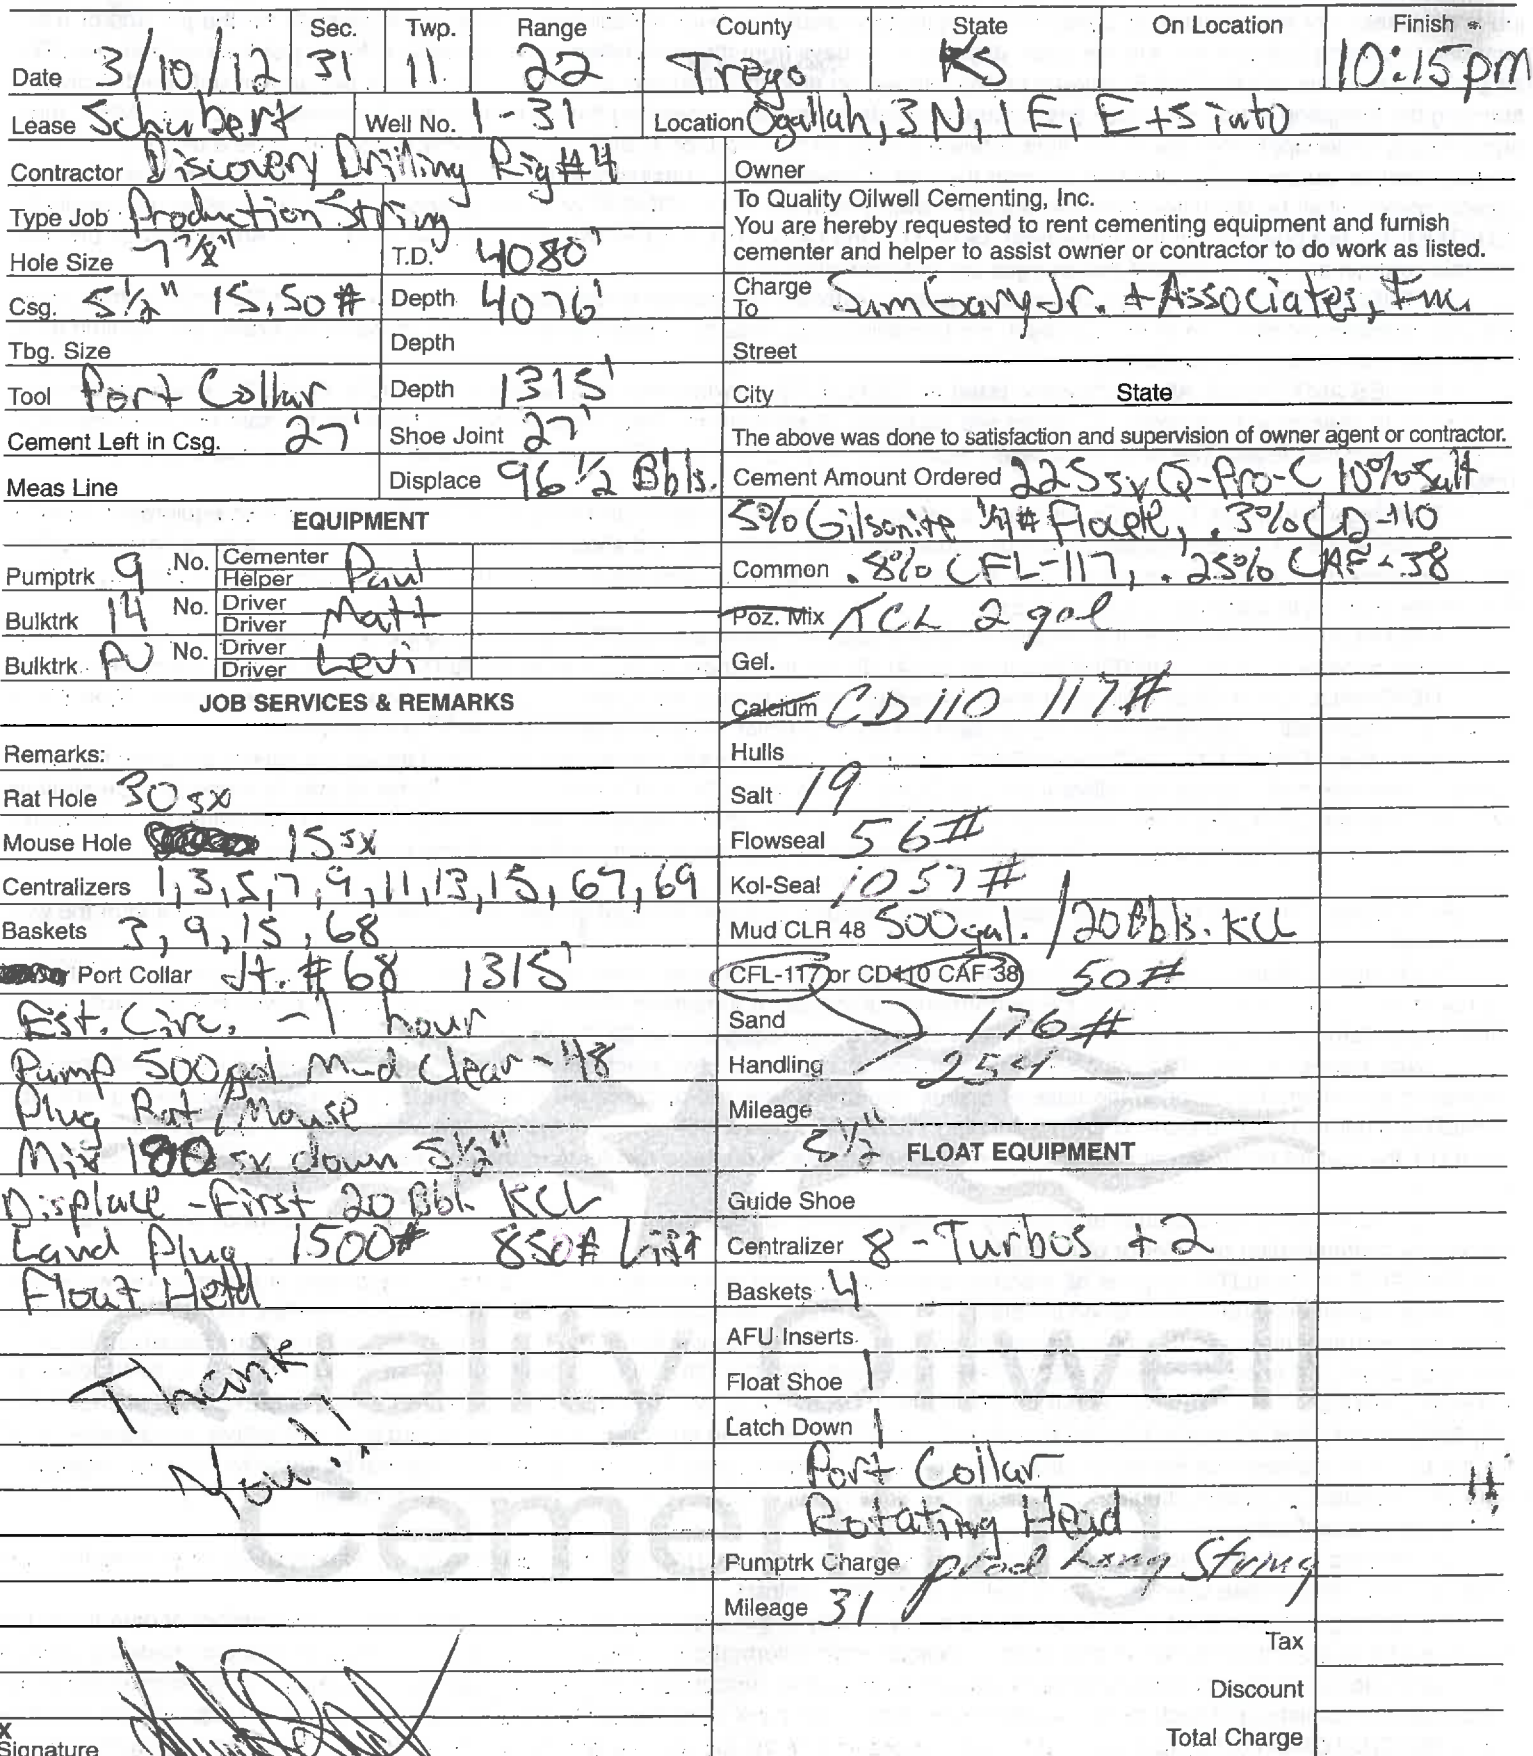 Sec. Twp. Range County State On Location Finish
Date 3/10/12 31 11 22 Trego KS 10:15pm
Lease Schubert Well No. 1-31 Location Ogallah, 3N, 1E, E+S into
Contractor Discovery Drilling Rig #4 Owner
Type Job Production String
Hole Size 7 7/8" T.D. 4080'
Csg. 5 1/2" 15.50# Depth 4076'
Tbg. Size Depth
Tool Port Collar Depth 1315'
Cement Left in Csg. 27' Shoe Joint 27'
Meas Line Displace 96 1/2 Bbls.
EQUIPMENT
Pumptrk 9 No. Cementer Helper Paul
Bulktrk 14 No. Driver Driver Matt
Bulktrk PU No. Driver Driver Levi
JOB SERVICES & REMARKS
Remarks:
Rat Hole 30sx
Mouse Hole 15sx
Centralizers 1,3,5,7,9,11,13,15,67,69
Baskets 3,9,15,68
Port Collar Jt. #68 1315'
Est. Circ. - 1 hour
Pump 500gal Mud Clear-48
Plug Rat/Mouse
Mix 180sx down 5 1/2"
Displace - First 20 Bbl. KCL
Land Plug 1500# 850# Lift
Float Held
Thank
You!!
X
Signature
To Quality Oilwell Cementing, Inc.
You are hereby requested to rent cementing equipment and furnish
cementer and helper to assist owner or contractor to do work as listed.
Charge To Sam Gary Jr. + Associates, Inc.
Street
City State
The above was done to satisfaction and supervision of owner agent or contractor.
Cement Amount Ordered 225sx Q-Pro-C 10% Salt
5% Gilsonite 1/4# Flocele, .3% CD-110
Common .8% CFL-117, .25% CAF-38
Poz. Mix KCL 2 gal
Gel.
Calcium CD110 117#
Hulls
Salt 19
Flowseal 56#
Kol-Seal 1057#
Mud CLR 48 500gal. / 20Bbls. KCL
CFL-117 or CD110 CAF 38 50#
Sand 176#
Handling 254
Mileage
5 1/2" FLOAT EQUIPMENT
Guide Shoe
Centralizer 8-Turbos +2
Baskets 4
AFU Inserts
Float Shoe 1
Latch Down 1
Port Collar
Rotating Head
Pumptrk Charge prod Long String
Mileage 31
Tax
Discount
Total Charge
Quality Oilwell
Cementing